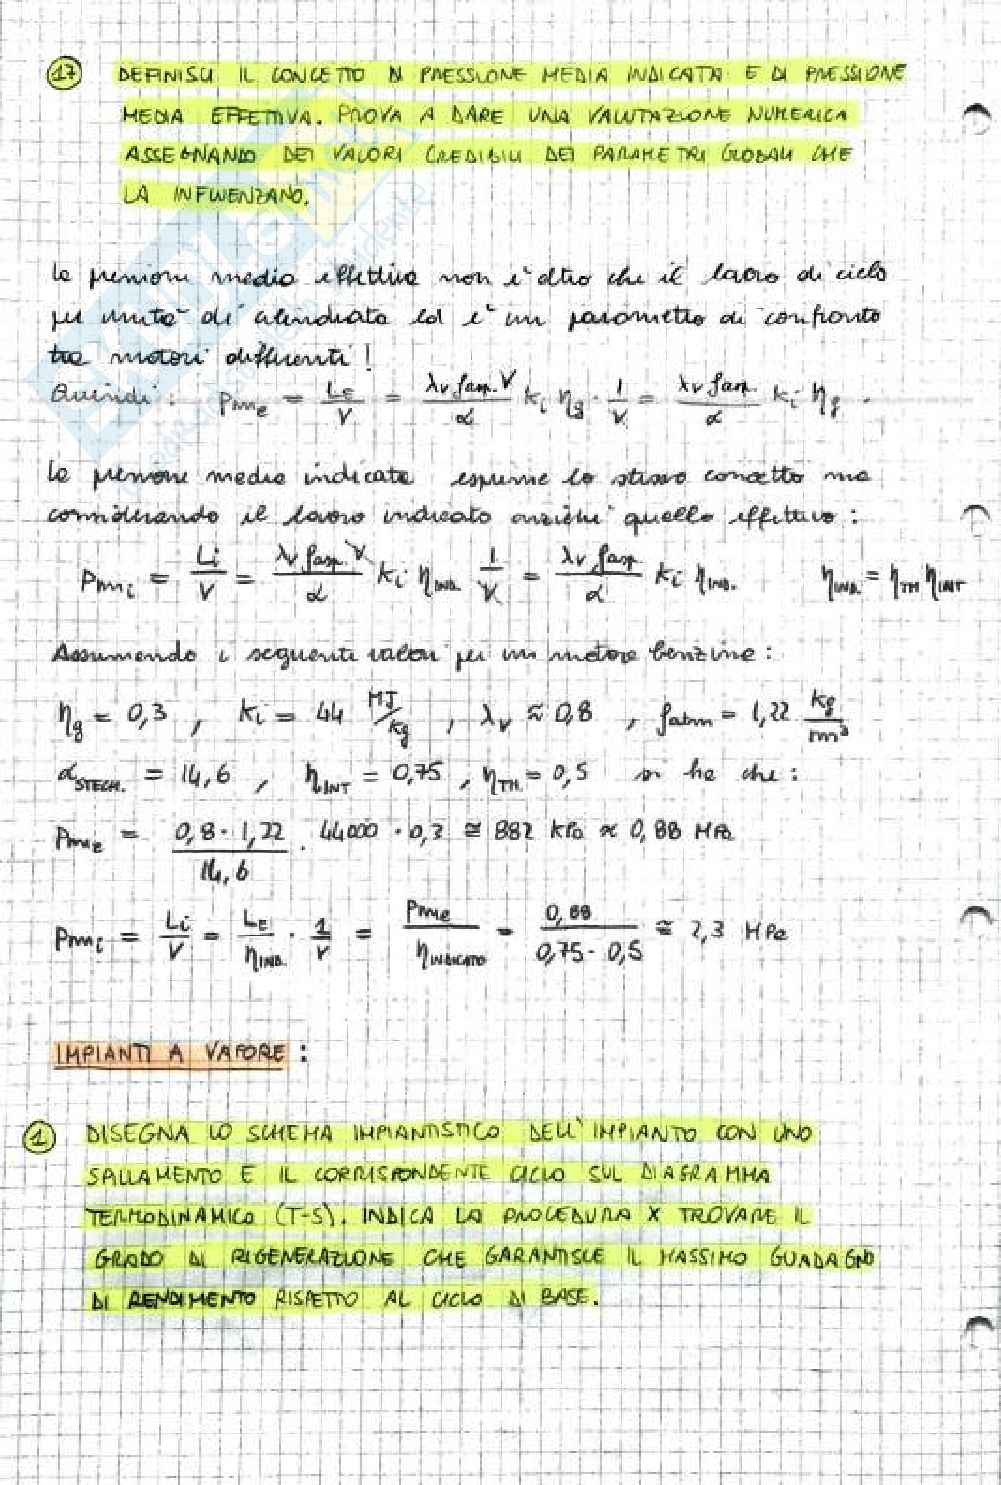 17 DEFINISCI IL CONCETTO DI PRESSIONE MEDIA INDICATA E DI PRESSIONE
MEDIA EFFETTIVA. PROVA A DARE UNA VALUTAZIONE NUMERICA
ASSEGNANDO DEI VALORI CREDIBILI DEI PARAMETRI GLOBALI CHE
LA INFLUENZANO.
La pressione media effettiva non è altro che il lavoro di ciclo
per unità di cilindrata ed è un parametro di confronto
tra motori differenti!
Quindi: pme = LE/V = λv ρasp. V/α Ki ηg · 1/V = λv ρasp./α Ki ηg .
La pressione media indicata esprime lo stesso concetto ma
considerando il lavoro indicato anziché quello effettivo:
pmi = Li/V = λv ρasp. V/α Ki ηIND. 1/V = λv ρasp/α Ki ηIND. ηIND. = ηTH ηINT
Assumendo i seguenti valori per un motore benzina:
ηg = 0,3 , Ki = 44 MJ/kg , λv ≈ 0,8 , ρatm = 1,22 kg/m³
αSTECH. = 14,6 , ηINT = 0,75 , ηTH = 0,5 si ha che:
pme = 0,8 · 1,22/14,6 · 44000 · 0,3 ≅ 882 kPa ≈ 0,88 MPa
pmi = Li/V = LE/ηIND. · 1/V = pme/ηINDICATO = 0,88/0,75 · 0,5 ≅ 2,3 MPa
IMPIANTI A VAPORE :
1 DISEGNA LO SCHEMA IMPIANTISTICO DELL'IMPIANTO CON UNO
SPILLAMENTO E IL CORRISPONDENTE CICLO SUL DIAGRAMMA
TERMODINAMICO (T-S). INDICA LA PROCEDURA X TROVARE IL
GRADO DI RIGENERAZIONE CHE GARANTISCE IL MASSIMO GUADAGNO
DI RENDIMENTO RISPETTO AL CICLO DI BASE.